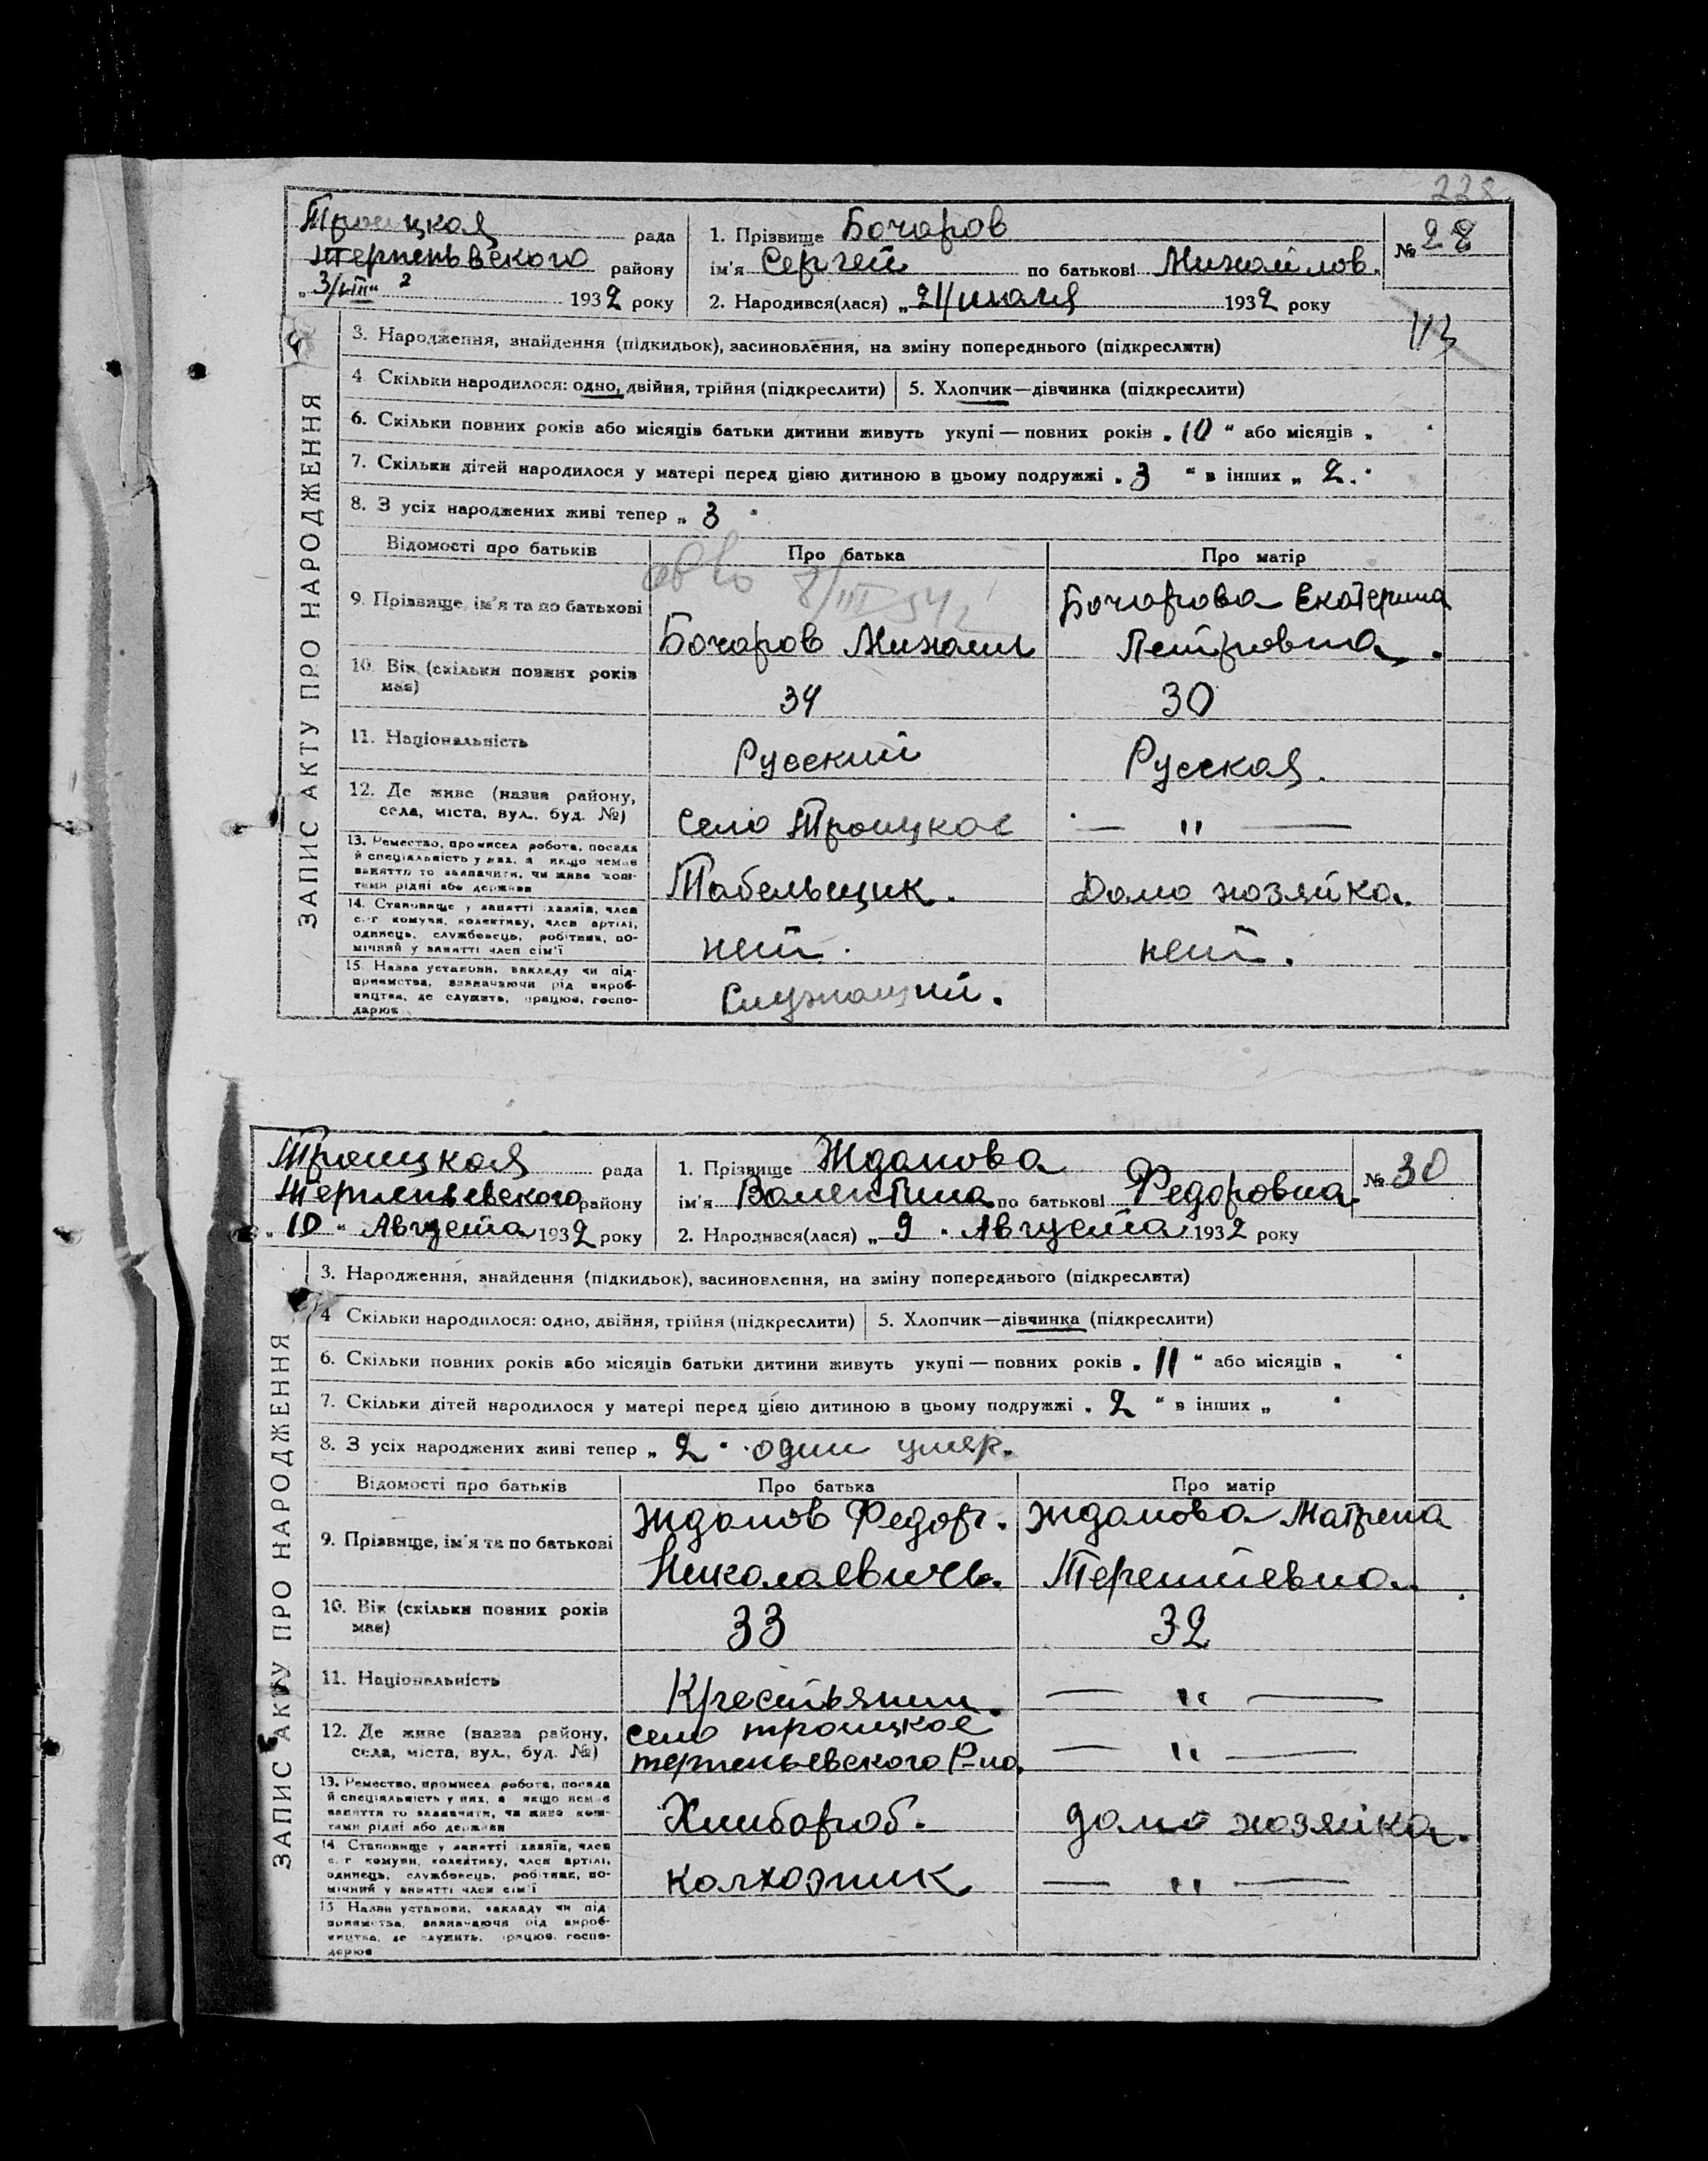 228
Троицкая рада
Терпеньвского району
„3/VIII" 2 1932 року
1. Прізвище Бочаров
ім'я Сергей по батькові Михайлов.
2. Народився(лася) „21/июля 1932 року
№ 28
ЗАПИС АКТУ ПРО НАРОДЖЕННЯ
3. Народження, знайдення (підкидьок), засиновлення, на зміну попереднього (підкреслити)
4. Скільки народилося: одно, двійня, трійня (підкреслити) 5. Хлопчик—дівчинка (підкреслити)
6. Скільки повних років або місяців батьки дитини живуть укупі — повних років „10" або місяців „ "
7. Скільки дітей народилося у матері перед цією дитиною в цьому подружжі „3 " в інших „ 2. "
8. З усіх народжених живі тепер „ 3 "
Відомості про батьків Про батька Про матір
9. Прізвище, ім'я та по батькові Бочаров Михаил Бочарова Екатерина
Петровна.
10. Вік (скільки повних років має) 34 30
11. Національність Русский Русская.
12. Де живе (назва району, села, міста, вул., буд. №) село Троицкое — " —
13. Ремество, промисел, робота, посада й спеціяльність у них, а якщо немає заняття то зазначити, чи живе коштами рідні або держави Табельщик. Домо хозяйка.
14. Становище у занятті: хазяїн, член с.-г. комуни, колективу, член артілі, одинець, службовець, робітник, помічний у занятті член сім'ї нет. нет.
15. Назва установи, закладу чи підприємства, зазначаючи рід виробництва, де служить, працює, господарює Служащий.
Троицкая рада
Терпеньевского району
„ 10 " Августа 1932 року
1. Прізвище Жданова
ім'я Валентина по батькові Федоровна.
2. Народився(лася) „ 9 " Августа 1932 року
№ 30
ЗАПИС АКТУ ПРО НАРОДЖЕННЯ
3. Народження, знайдення (підкидьок), засиновлення, на зміну попереднього (підкреслити)
4. Скільки народилося: одно, двійня, трійня (підкреслити) 5. Хлопчик—дівчинка (підкреслити)
6. Скільки повних років або місяців батьки дитини живуть укупі — повних років „ 11 " або місяців „ "
7. Скільки дітей народилося у матері перед цією дитиною в цьому подружжі „ 2 " в інших „ "
8. З усіх народжених живі тепер „ 2 " один умер.
Відомості про батьків Про батька Про матір
9. Прізвище, ім'я та по батькові Жданов Федор. Жданова Матрена
Николаевичь. Терентьевна.
10. Вік (скільки повних років має) 33 32
11. Національність Крестьянин. — " —
12. Де живе (назва району, села, міста, вул., буд. №) село троицкое — " —
терпеньевского Р-на.
13. Ремество, промисел, робота, посада й спеціяльність у них, а якщо немає заняття то зазначити, чи живе коштами рідні або держави Хлибороб. домо хозяйка.
14. Становище у занятті: хазяїн, член с.-г. комуни, колективу, член артілі, одинець, службовець, робітник, помічний у занятті член сім'ї колхозник — " —
15. Назва установи, закладу чи підприємства, зазначаючи рід виробництва, де служить, працює, господарює